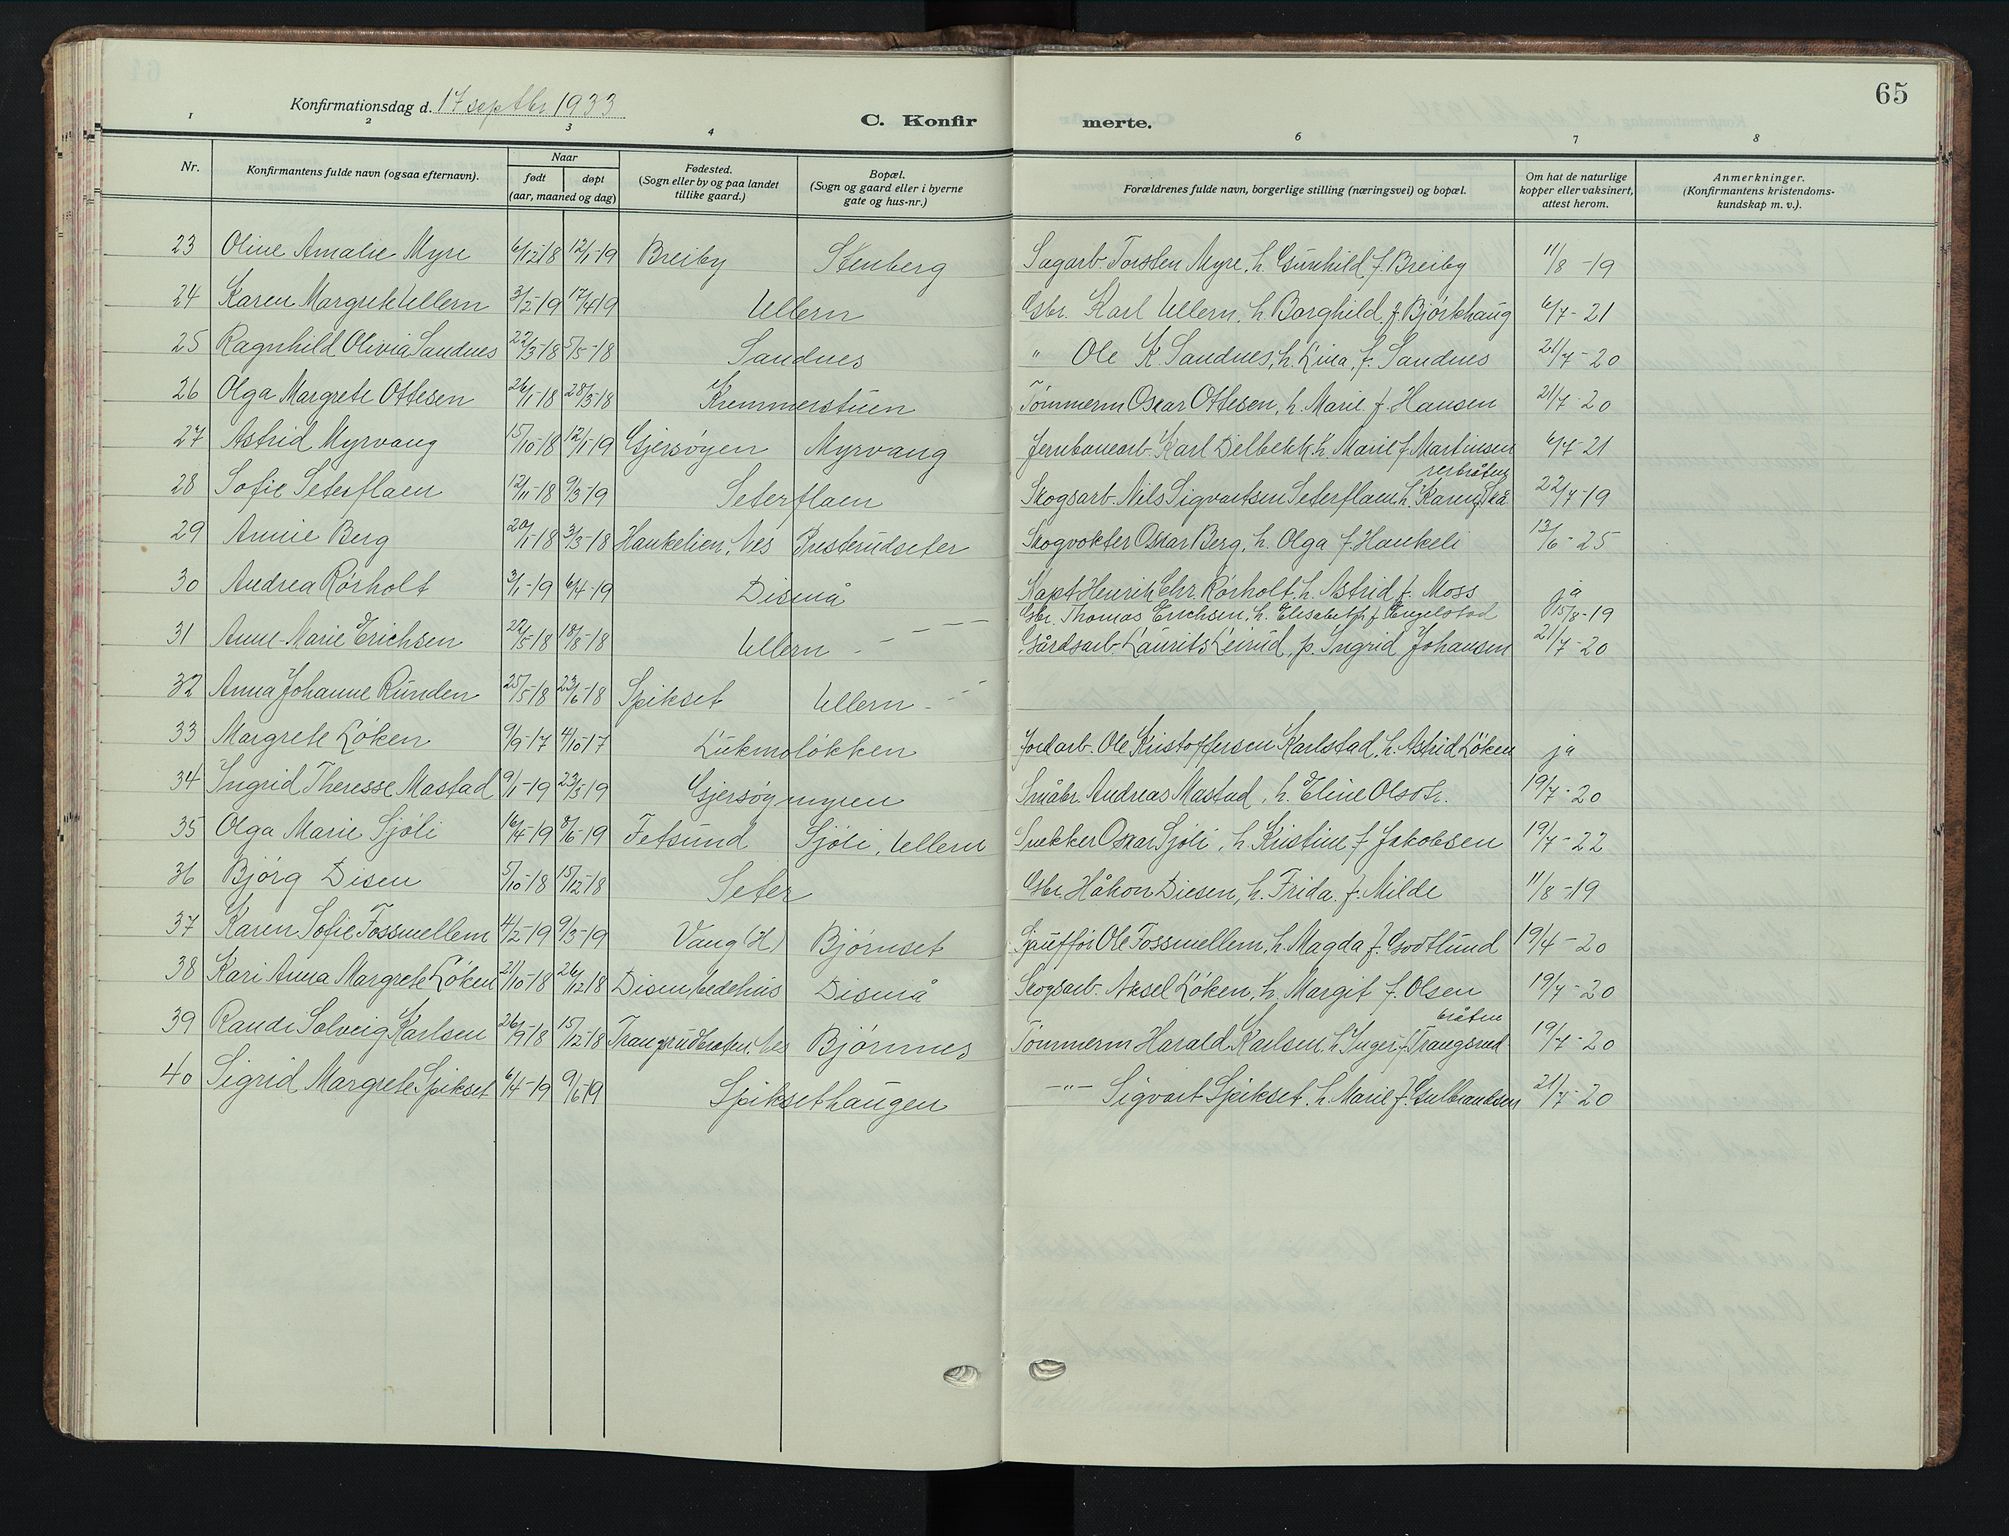 65
Konfirmationsdag d. 17 septbr 1933
C. Konfirmerte.
1 2 3 4 6 7 8
Nr. Konfirmantens fulde navn (ogsaa efternavn). Naar født døpt (aar, maaned og dag) Fødested. (Sogn eller by og paa landet tillike gaard.) Bopæl. (Sogn og gaard eller i byerne gate og hus-nr.) Forældrenes fulde navn, borgerlige stilling (næringsvei) og bopæl. Om hat de naturlige kopper eller vaksinert, attest herom. Anmerkninger. (Konfirmantens kristendomskundskap m. v.).
23 Oline Amalie Myre 6/12-18 12/1-19 Breiby Stenberg Sagarb. Torsten Myre, h. Gunhild f. Breiby 11/8-19
24 Karen Margrete Ullern 3/2-19 17/4-19 Ullern Gbr. Karl Ullern, h. Borghild f. Bjørkhaug 6/7-21
25 Ragnhild Olivia Sandnes 22/3-18 5/5-18 Sandnes " Ole K. Sandnes, h. Lina, f. Sandnes 21/7-20
26 Olga Margrete Ottesen 26/1-18 28/3-18 Kremmerstuen Tømmerm Oskar Ottesen, h. Marie f. Hansen 21/7-20
27 Astrid Myrvang 15/10-18 12/1-19 Gjersøyen Myrvang Jernbanearb. Karl Delbekk h. Marie f. Martinsen 6/7-21
28 Sofie Seterflaen 12/11-18 9/3-19 Seterflaen Skogsarb. Nils Sigvartsen Seterflaen, h. Karen f. Skarerbråten 22/7-19
29 Annie Berg 20/1-18 3/3-18 Haukelien, Nes Presterudseter Skogvokter Oskar Berg, h. Olga f. Haukeli 13/6-25
30 Andrea Rørholt 3/1-19 6/4-19 Disenå Kapt Henrik Chr. Rørholt, h. Astrid f. Moss ja
Gbr. Thomas Erichsen, h. Elisabeth f. Engelstad 15/8-19
31 Anne-Marie Erichsen 22/5-18 18/8-18 Ullern - - - - Gårdsarb. Laurits Leirud, p. Ingrid Johansen 21/7-20
32 Anna Johanne Runden 25/5-18 23/6-18 Spikset Ullern - - -
33 Margrete Løken 9/9-17 4/10-17 Lukmoløkken Jordarb. Ole Kristoffersen Karlstad, h. Astrid Løken ja
34 Ingrid Theresse Mastad 9/1-19 23/3-19 Gjersøymyren Småbr. Andreas Mastad, h. Eline Olsdtr. 19/7-20
35 Olga Marie Sjøli 16/4-19 8/6-19 Fetsund Sjøli, Ullern Snekker Oskar Sjøli, h. Kristine f. Jakobsen 19/7-22
36 Bjørg Disen 5/10-18 15/12-18 Seter Gbr. Håkon Diesen, h. Frida f. Milde 11/8-19
37 Karen Sofie Fossmellem 4/2-19 9/3-19 Vang (H) Bjørnset Sjufför Ole Fossmellem, h. Magda f. Godtlund 19/4-20
38 Kari Anna Margrete Løken 21/10-18 26/12-18 Disen bedehus Disenå Skogsarb. Aksel Løken, h. Margit f. Olsen 19/7-20
39 Randi Solveig Karlsen 26/9-18 15/12-18 Trangsrudbråten. Nes Bjørnnes Tømmerm Harald Karlsen, h. Inger f. Trangsrudbråten 19/7-20
40 Sigrid Margrete Spikset 6/4-19 9/6-19 Spiksethaugen -"- Sigvart Spikset, h. Marie f. Gulbrandsen 21/7-20